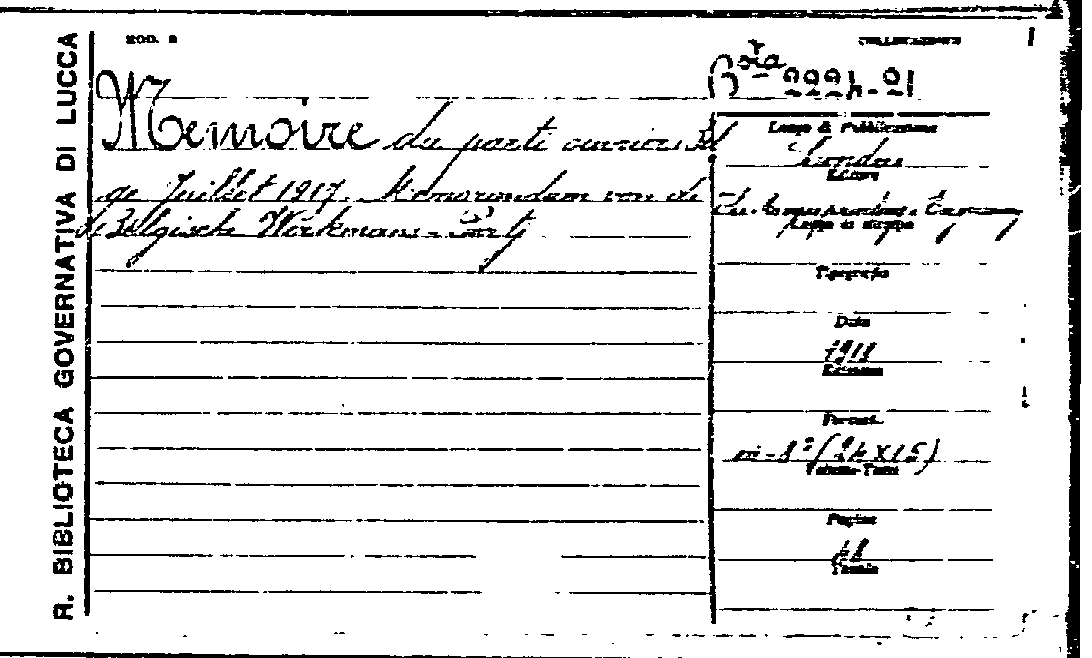 R. BIBLIOTECA GOVERNATIVA DI LUCCA
MOD. 2
COLLOCAZIONE
Bta 2221-21
Memoire du parti ouvrier Bel
ge Juillet 1917. Memorandum von de
de Belgische Werkmans-Partij
Luogo di Pubblicazione
Londres
Editore
Luogo di stampa
Tipografia
Data
1918
Edizione
Formato
in-8° (24 x 15)
Volume-Tomo
Pagine
48
Tavole